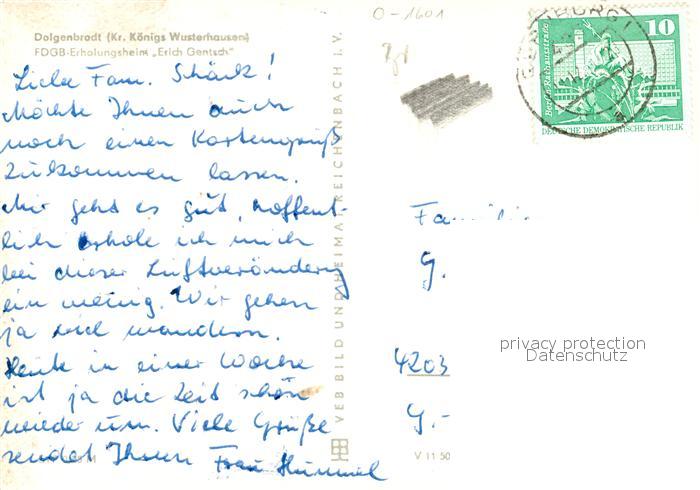 Dolgenbrodt (Kr. Königs Wusterhausen)
FDGB-Erholungsheim „Erich Gentsch"
Liebe Fam. Schänk!
Möchte Ihnen auch
noch einen Kartengruß
zukommen lassen.
Mir geht es gut, hoffent-
lich erhole ich mich
bei dieser Luftveränderung
ein wenig. Wir gehen
ja viel wandern.
Heute in einer Woche
ist ja die Zeit schön
wieder um. Viele Grüße
sendet Ihnen Frau Hummel
VEB BILD UND HEIMAT REICHENBACH I. V.
0-1601
10
DEUTSCHE DEMOKRATISCHE REPUBLIK
Familie
G.
privacy protection
Datenschutz
4203
G.-
V 11 50